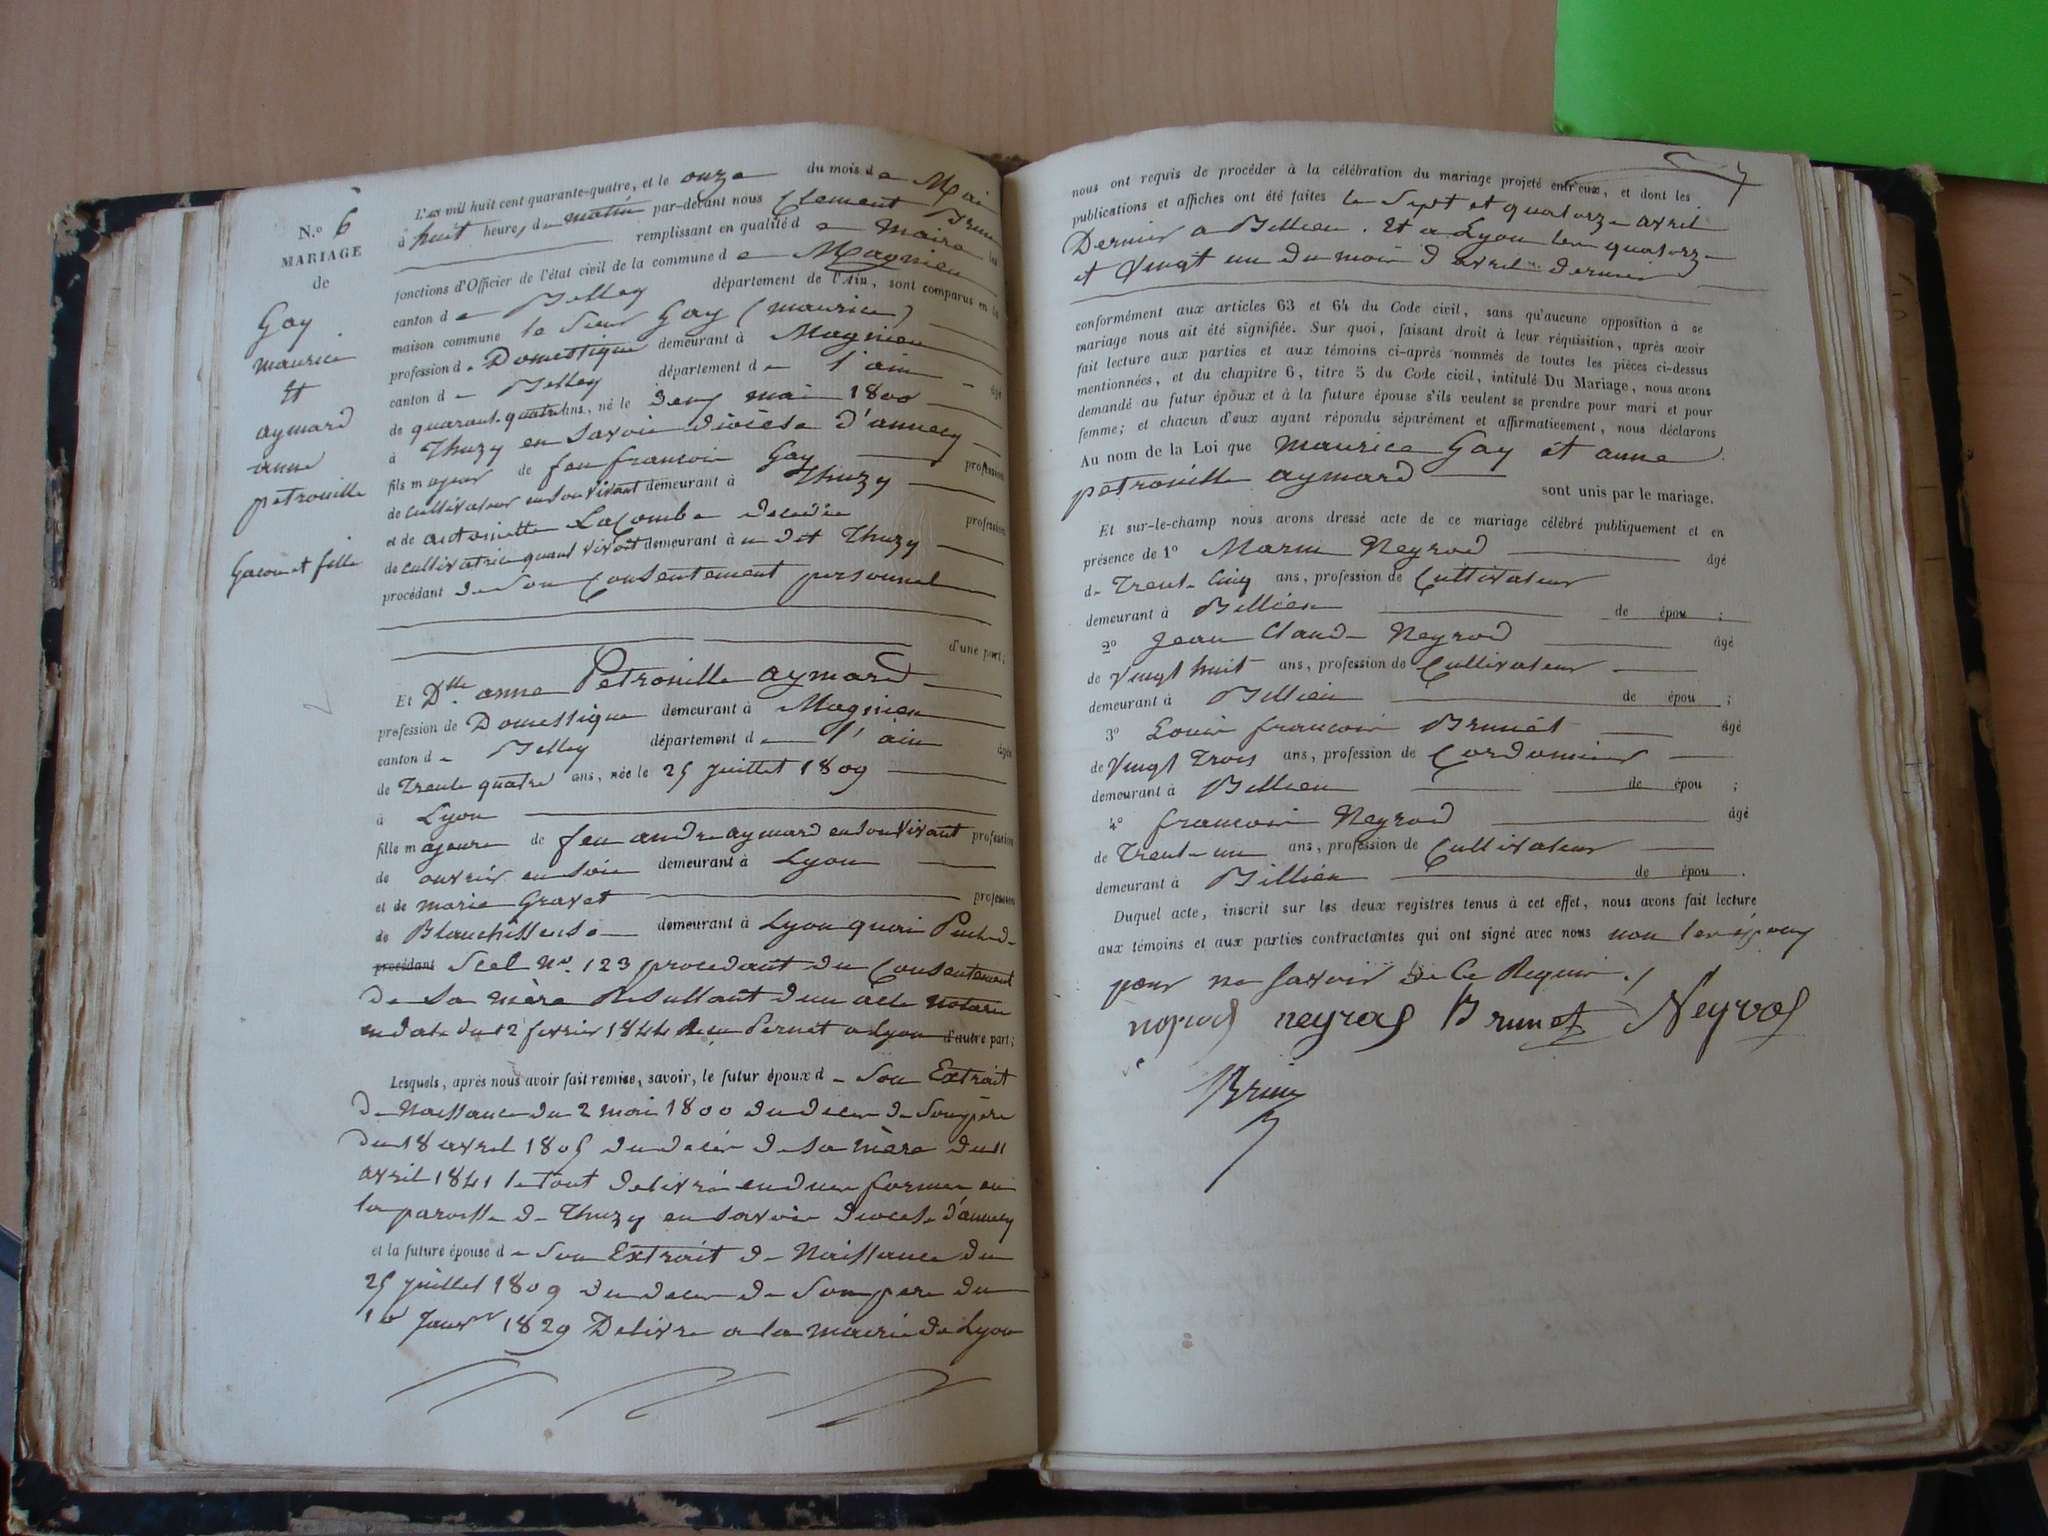 N.º 6
MARIAGE
de
Gay
maurice
Et
aymard
anne
petronille
Garcon et fille
L'an mil huit cent quarante-quatre, et le onze du mois de Mai
à huit heure, du matin par-devant nous Clement Brun
remplissant en qualité de Maire les
fonctions d'Officier de l'état civil de la commune de Magnieu
canton de Belley département de l'Ain, sont comparus en la
maison commune le Sieur Gay (maurice)
profession de Domestique demeurant à Magnieu
canton de Belley département de l'ain âgé
de quarant. quatre ans, né le deux mai 1800
à Thuzy en Savoie diocèse d'annecy
fils majeur de feu francois Gay profession
de Cultivateur en son vivant demeurant à Thuzy
et de antoinette LaCombe décédée profession
de cultivatrice quand vivoit demeurant à u dit Thuzy
procédant de son Consentement personnel
d'une part;
Et Dlle anne Petronille aymard
profession de Domestique demeurant à Magnieu
canton de Belley département de l'ain âgée
de Trente quatre ans, née le 25 juillet 1809
à Lyon
fille majeure de feu andre aymard en son vivant profession
de ouvrier en soie demeurant à Lyon
et de marie Gravet profession
de Blanchisseuse demeurant à Lyon quai Puits de
procédant Scel No. 123 procedant du Consentement
de sa mère Resultant d'un acte notarié
en date du 12 fevrier 1844 Reçu Pernet a Lyon d'autre part;
Lesquels, après nous avoir fait remise, savoir, le futur époux de son Extrait
de Naissance du 2 mai 1800 du deces de Son père
du 18 avril 1805 du décès de sa mère du 11
avril 1841 le Tout délivré en due forme en
la paroisse de Thuzy en Savoie diocese d'annecy
et la future épouse de son Extrait de Naissance du
25 juillet 1809 du deces de Son pere du
16 Janvr 1829 Delivré a la mairie de Lyon
nous ont requis de procéder à la célébration du mariage projeté entr'eux, et dont les
publications et affiches ont été faites le Sept et quatorze avril
Dernier a Billieu. Et a Lyon les quatorze
et Vingt un du mois d avril dernier
conformément aux articles 63 et 64 du Code civil, sans qu'aucune opposition à se
mariage nous ait été signifiée. Sur quoi, faisant droit à leur réquisition, après avoir
fait lecture aux parties et aux témoins ci-après nommés de toutes les pièces ci-dessus
mentionnées, et du chapitre 6, titre 5 du Code civil, intitulé Du Mariage, nous avons
demandé au futur époux et à la future épouse s'ils veulent se prendre pour mari et pour
femme; et chacun d'eux ayant répondu séparément et affirmativement, nous déclarons
Au nom de la Loi que Maurice Gay et anne
petronille aymard sont unis par le mariage.
Et sur-le-champ nous avons dressé acte de ce mariage célébré publiquement et en
présence de 1º Marin Neyrod âgé
de Trente Cinq ans, profession de Cultivateur
demeurant à Billieu de épou ;
2º Jean Claude Neyrod âgé
de Vingt huit ans, profession de Cultivateur
demeurant à Billieu de épou ;
3º Louis francois Brunet âgé
de Vingt Trois ans, profession de Cordonnier
demeurant à Billieu de épou ;
4º francois Neyrod âgé
de Trente un ans, profession de Cultivateur
demeurant à Billieu de épou .
Duquel acte, inscrit sur les deux registres tenus à cet effet, nous avons fait lecture
aux témoins et aux parties contractantes qui ont signé avec nous non les époux
pour ne savoir de Ce Requis.
neyrod neyrod Brunet Neyrod
Brun